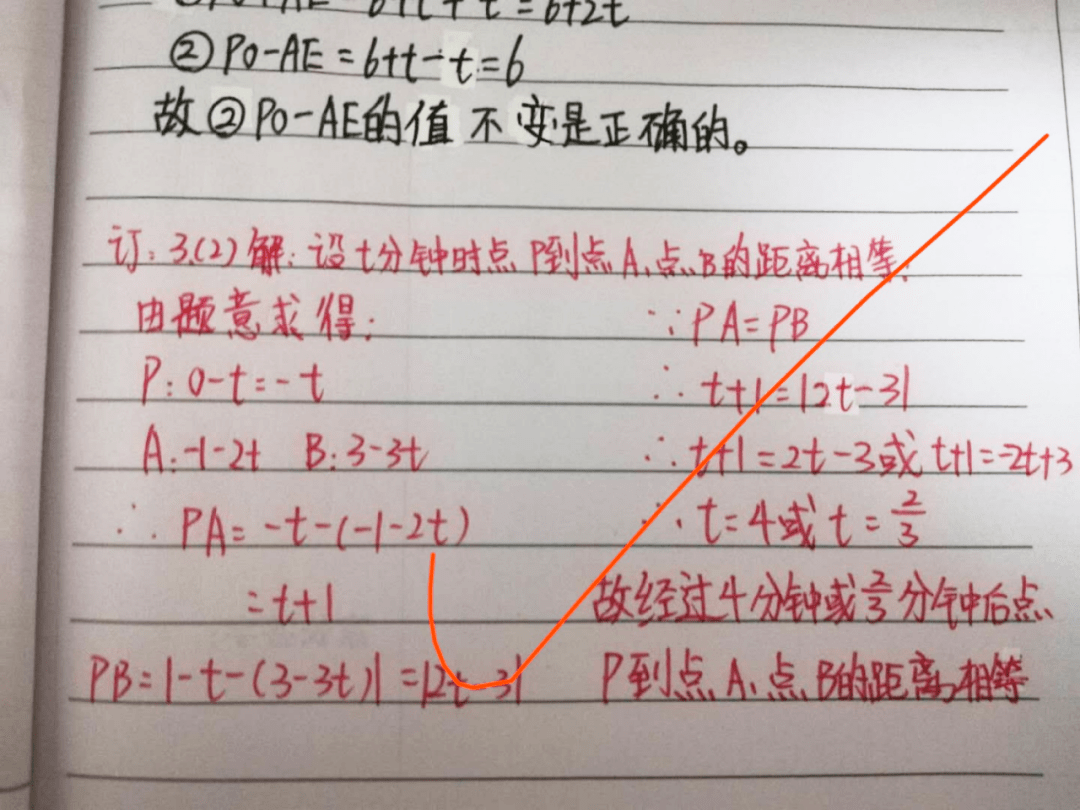 PO+AE=6+t+t=6+2t
②PO-AE=6+t-t=6
故②PO-AE的值不变是正确的。
订:3.(2)解:设t分钟时点P到点A、点B的距离相等.
由题意求得:
P:0-t=-t
A:-1-2t B:3-3t
∴PA=-t-(-1-2t)
=t+1
PB=|-t-(3-3t)|=|2t-3|
∵PA=PB
∴t+1=|2t-3|
∴t+1=2t-3或t+1=-2t+3
∴t=4或t=2/3
故经过4分钟或2/3分钟后点
P到点A、点B的距离相等